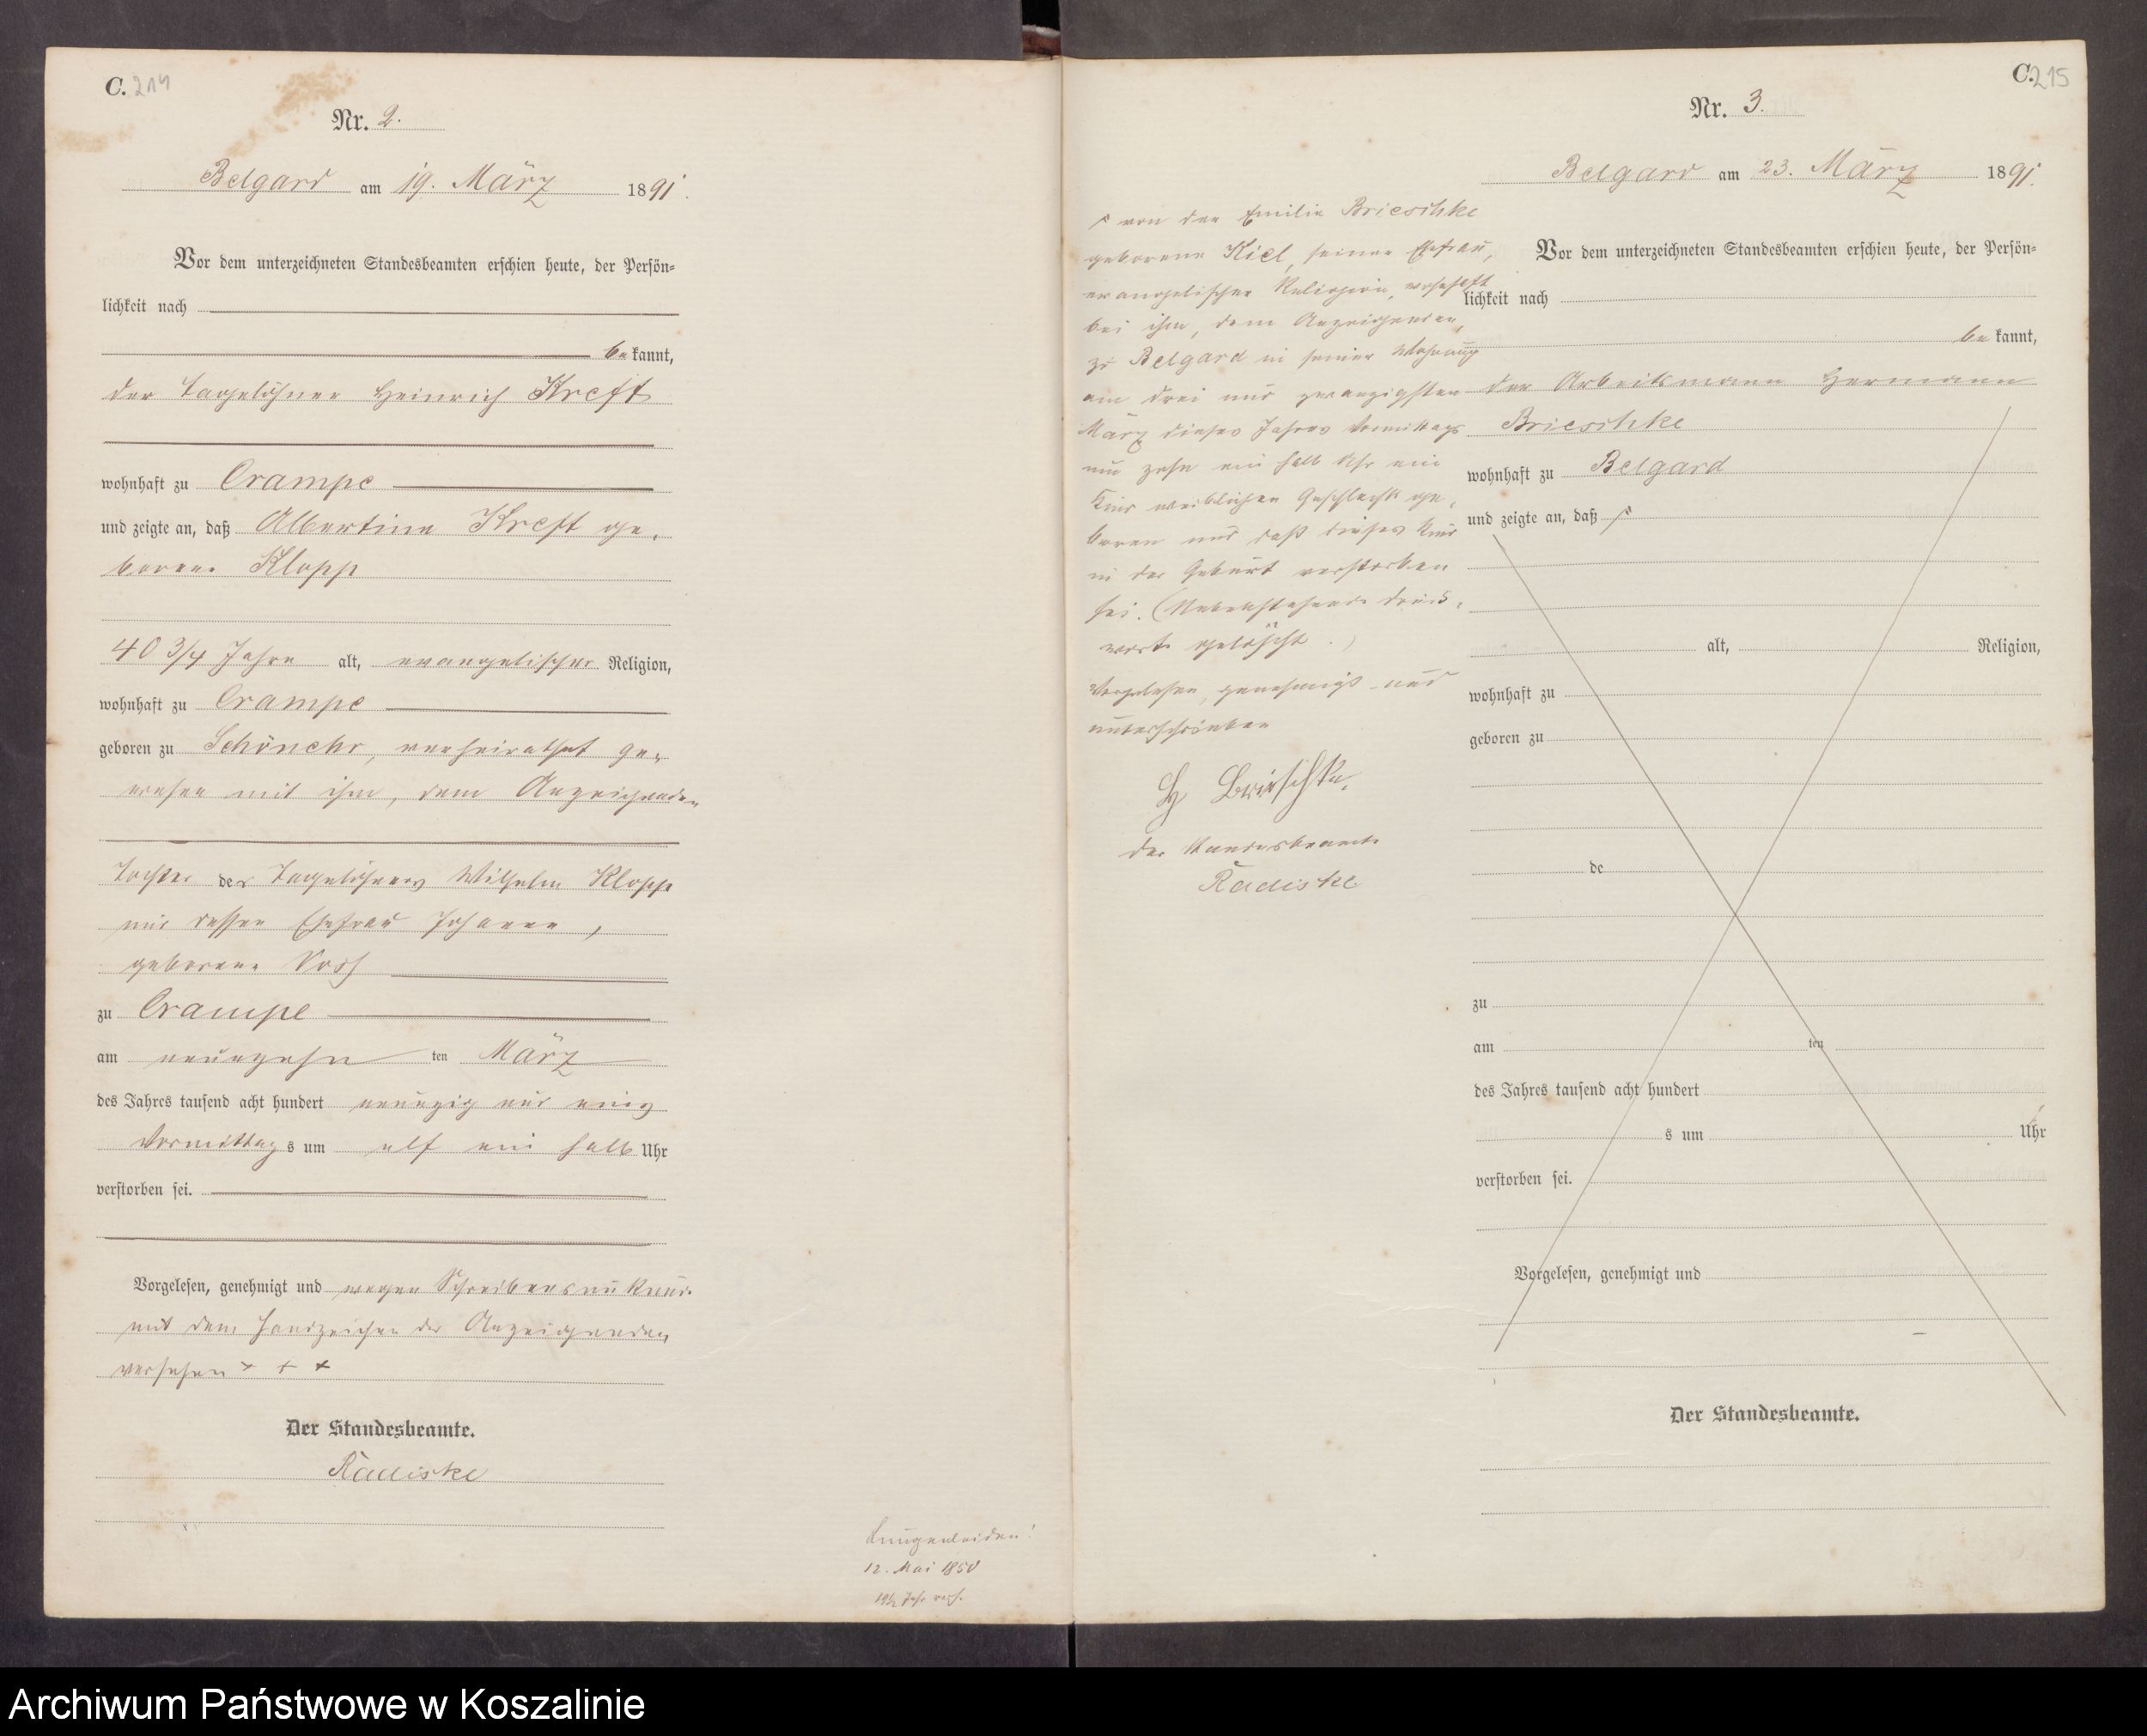 C. 214
Nr. 2.
Belgard am 19. März 1891.
Vor dem unterzeichneten Standesbeamten erschien heute, der Persön=
lichkeit nach
be kannt,
der Tagelöhner Heinrich Kreft
wohnhaft zu Crampe
und zeigte an, daß Albertine Kreft ge-
borene Klopp
40 3/4 Jahre alt, evangelischer Religion,
wohnhaft zu Crampe
geboren zu Schönehr, verheirathet ge-
wesen mit ihm, dem Anzeigenden
Tochter des Tagelöhners Wilhelm Klopp
und dessen Ehefrau Johanne,
geborene Voss
zu Crampe
am neunzehn ten März
des Jahres tausend acht hundert neunzig und eins
Vormittag s um elf ein halb Uhr
verstorben sei.
Vorgelesen, genehmigt und wegen Schreibensunkunde
mit dem Handzeichen des Anzeigenden
versehen + + +
Der Standesbeamte.
Radiske
Lungenleiden!
12. Mai 1850
19½ Jahr verh.
C. 215
Nr. 3.
Belgard am 23. März 1891.
Vor dem unterzeichneten Standesbeamten erschien heute, der Persön=
lichkeit nach
be kannt,
der Arbeitsmann Hermann
Brieschke
wohnhaft zu Belgard
und zeigte an, daß
alt, Religion,
wohnhaft zu
geboren zu
de
zu
am ten
des Jahres tausend acht hundert
s um Uhr
verstorben sei.
Vorgelesen, genehmigt und
Der Standesbeamte.
von der Emilie Brieschke
geborene Kiel, seiner Ehefrau,
evangelischer Religion, wohnhaft
bei ihm, dem Anzeigenden,
zu Belgard in seiner Wohnung
am drei und zwanzigsten
März dieses Jahres Vormittags
um zehn ein halb Uhr ein
Kind weiblichen Geschlechts ge-
boren und daß dieses Kind
in der Geburt verstorben
sei. (Nebenstehende Druck-
worte gelöscht.)
Vorgelesen, genehmigt und
unterschrieben
H Brieschke.
Der Standesbeamte
Radiske
Archiwum Państwowe w Koszalinie